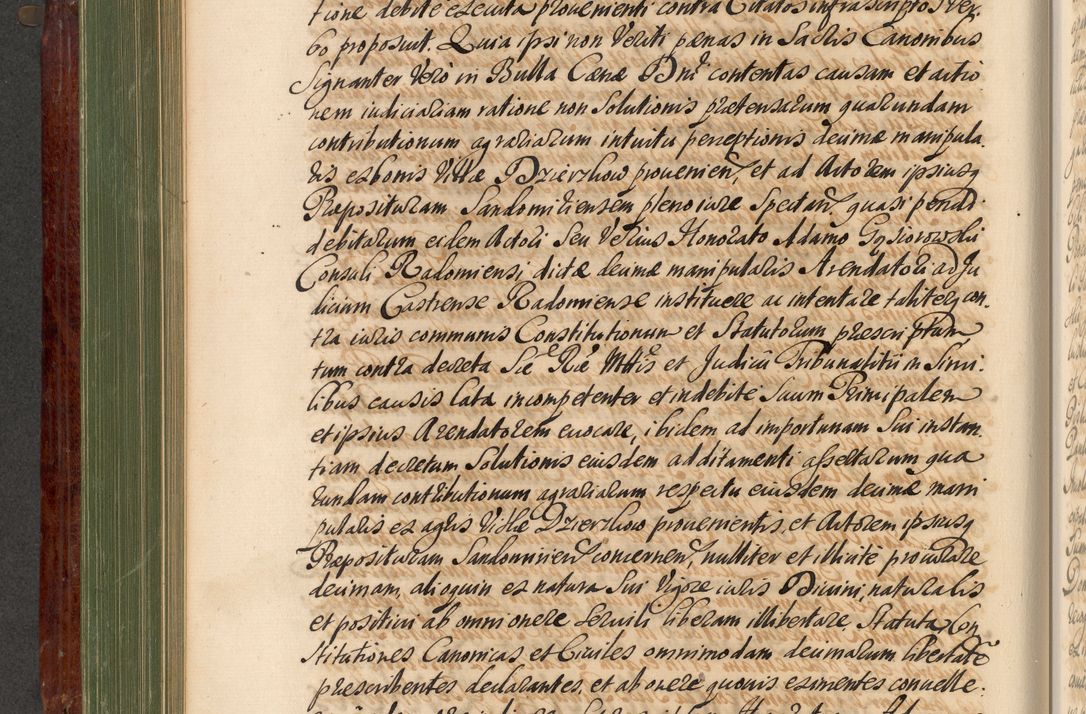 tione debite executa provenienti contra Citatos infra scriptos Ver-
bo proposuit. Quia ipsi non Veriti pænas in Sacris Canonibus
Signanter Verò in Bulla Cænæ Dnĩ contentas causam et actio
nem iudiciariam ratione non Solutionis prætensarum quarundam
contributionum agrariarum intuitu perceptionis decimæ manipula
ris ex bonis Villæ Dzierzkow provenien, et ad Actorem ipsiusq
Præposituram Sandomiriensem pleno iure Spectan, quasi
debitarum eidem Actori Seu Verius Honorato Adamo Gąsiorowski
Consuli Radomiensi dictæ decimæ manipularis Arendatori ad Ju
dicium Castrense Radomiense instituere ac intentare taliterq con-
tra iuris communis Constitutionum et Statutorum præscriptum
tum contra decreta Sæ Ræ Mttis et Judicii Tribunalitii in Simi-
libus causis lata incompetenter et indebite Suum Principalem
et ipsius Arendatorem evocare, ibidem ad importunam Sui instan-
tiam decretum Solutionis eiusdem additamenti assertarum qua
rundam contributionum agrariarum respectu eiusdem decimæ mani
pularis ex agris Villæ Dzierzkow provenientis, et Actorem ipsiusq
Præposituram Sandomirien concernen, nulliter et illicite procurare
decimam, alioquin ex natura Sui Vigore iuris Divini, naturalis
et positivi ab omni onere servili liberam illibertare, Statuta Con
stitutiones Canonicas et Civiles omnimodam decimarum libertatẽ
præscribentes declarantes, et ab onere quovis eximentes convelle-